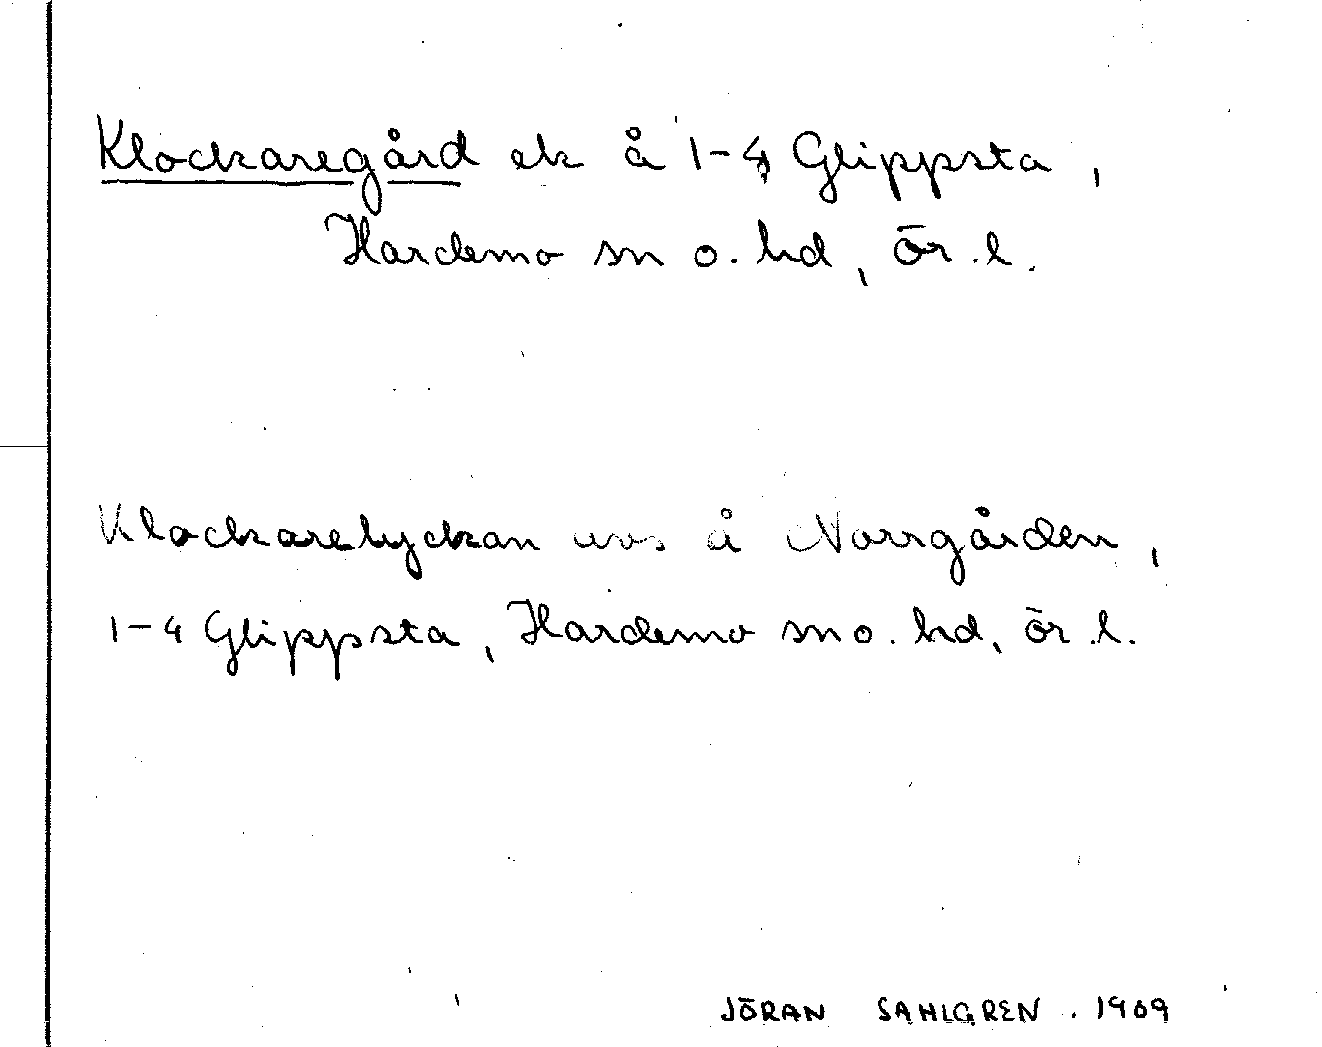 Klockaregård ek å 1-4 Glippsta,
Hardemo sn o. hd, ör. l.
Klockarelyckan uvs å Norrgården,
1-4 Glippsta, Hardemo sn o. hd, ör. l.
JÖRAN SAHLGREN. 1909